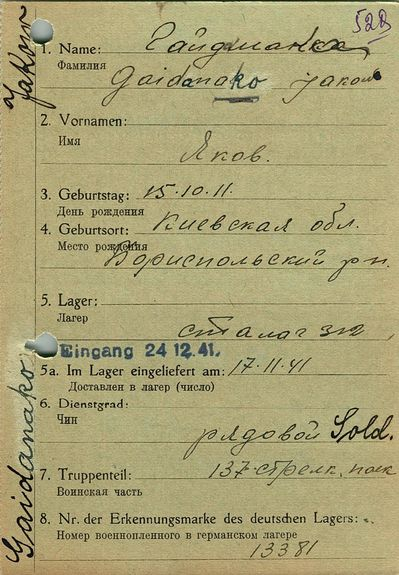 528
Jakow
1. Name: Гайдманка
Фамилия
Gaidanako Jakow
2. Vornamen:
Имя
Яков.
3. Geburtstag: 15.10.11.
День рождения
4. Geburtsort: Киевская обл.
Место рождения
Бориспольский р-н.
5. Lager:
Лагерь
сталаг 312
Eingang 24 12. 41.
5a. Im Lager eingeliefert am: 17.11.41
Доставлен в лагер (число)
6. Dienstgrad:
Чин
рядовой Sold.
7. Truppenteil: 137 стрелк. полк
Воинская часть
8. Nr. der Erkennungsmarke des deutschen Lagers:
Номер военнопленного в германском лагере
13381
Gaidanako